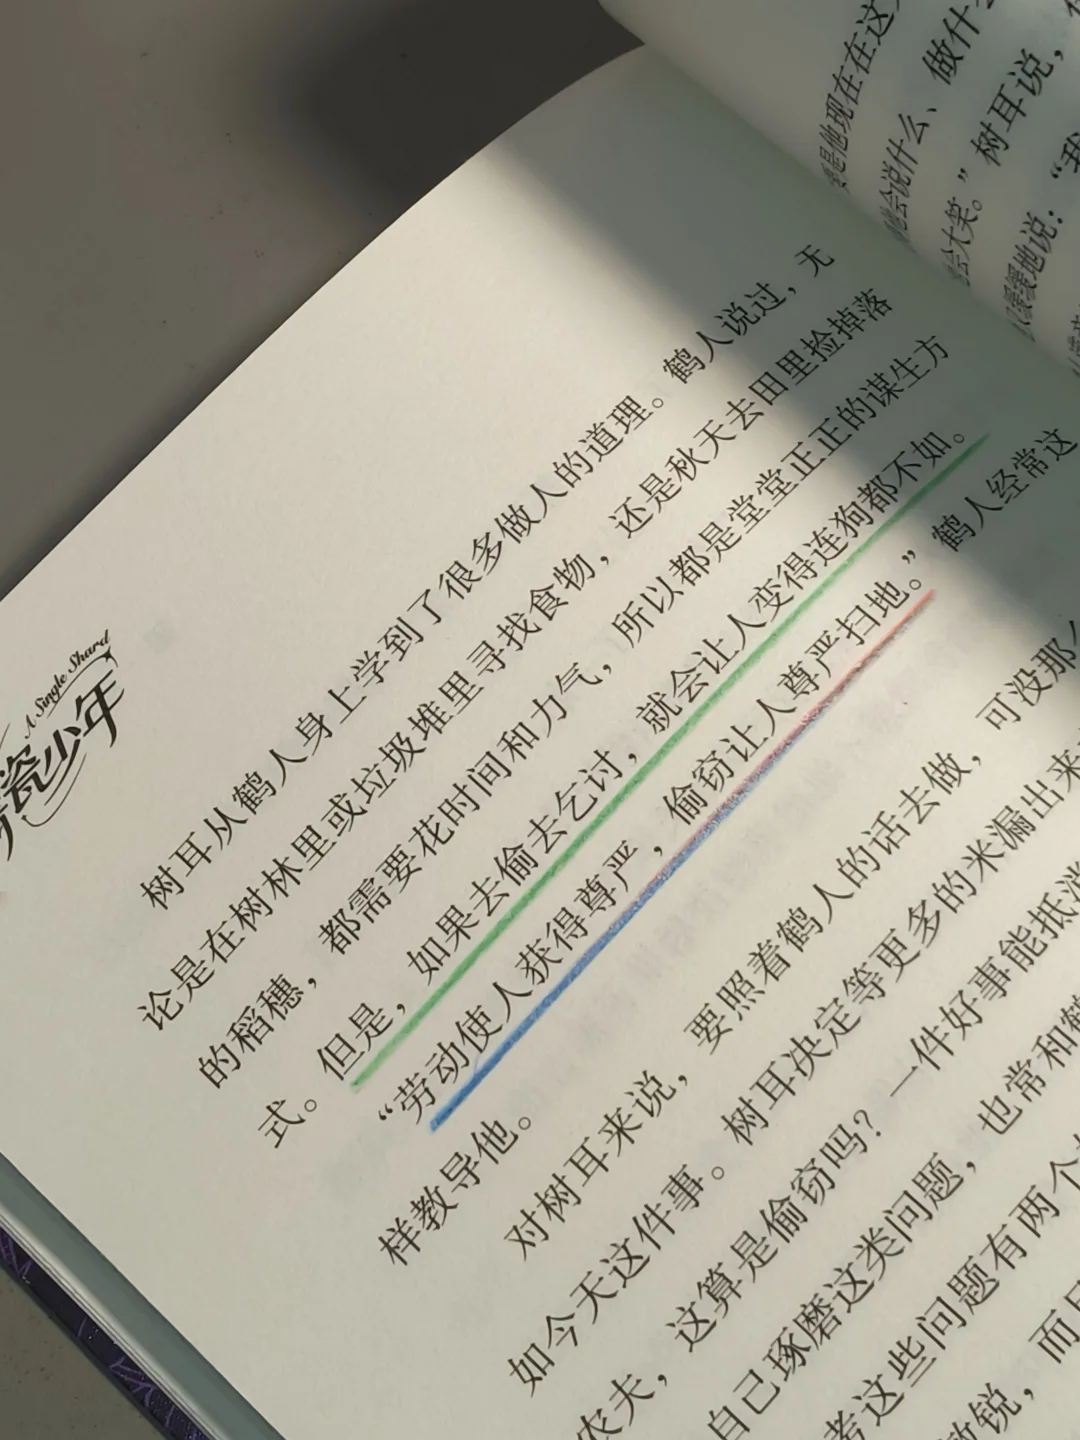 是他现在在这
会说什么、做什么
会大笑。”树耳说,
缓缓地说:“我
A Single Shard
瓷少年
树耳从鹤人身上学到了很多做人的道理。鹤人说过,无
论是在树林里或垃圾堆里寻找食物,还是秋天去田里捡掉落
的稻穗,都需要花时间和力气,所以都是堂堂正正的谋生方
式。但是,如果去偷去乞讨,就会让人变得连狗都不如。
“劳动使人获得尊严,偷窃让人尊严扫地。”鹤人经常这
样教导他。
对树耳来说,要照着鹤人的话去做,可没那么
如今天这件事。树耳决定等更多的米漏出来
农夫,这算是偷窃吗?一件好事能抵消
自己琢磨这类问题,也常和鹤
考这些问题有两个
敏锐,而且